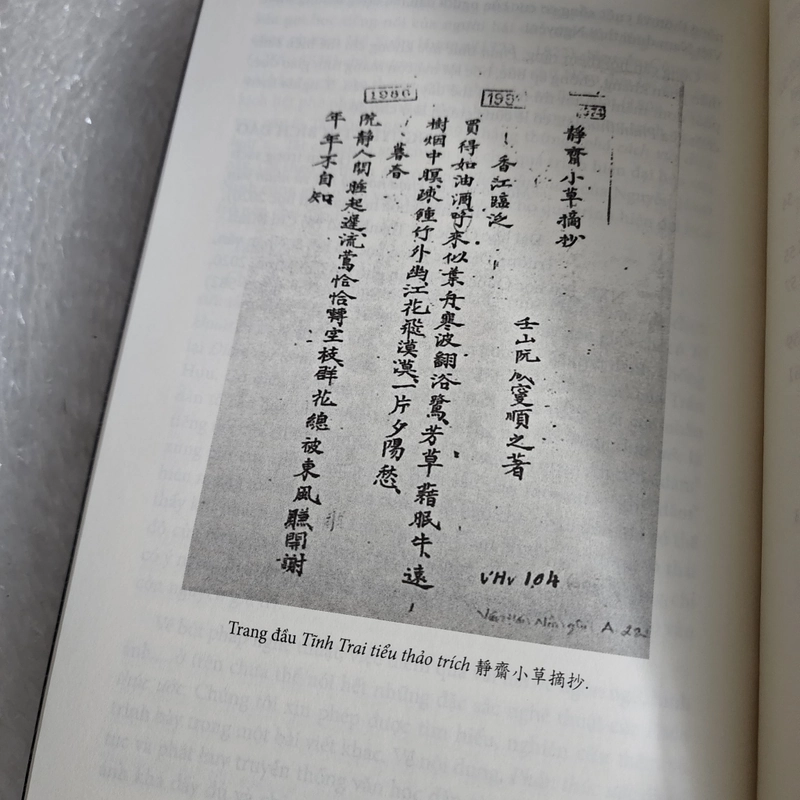 1986
靜齋小草摘抄
壬山阮咸寧順之著
香江臨泛
買得如油酒呼來似葉舟寒波翻浴鷺芳草藉眠牛遠
樹烟中暝疎鍾竹外幽江花飛漠漠一片夕陽愁
暮春
院靜人閒睡起遲流鶯恰恰囀空枝群花總被東風賺開謝
年年不自知
VHv 104
Trang đầu Tĩnh Trai tiểu thảo trích 靜齋小草摘抄.